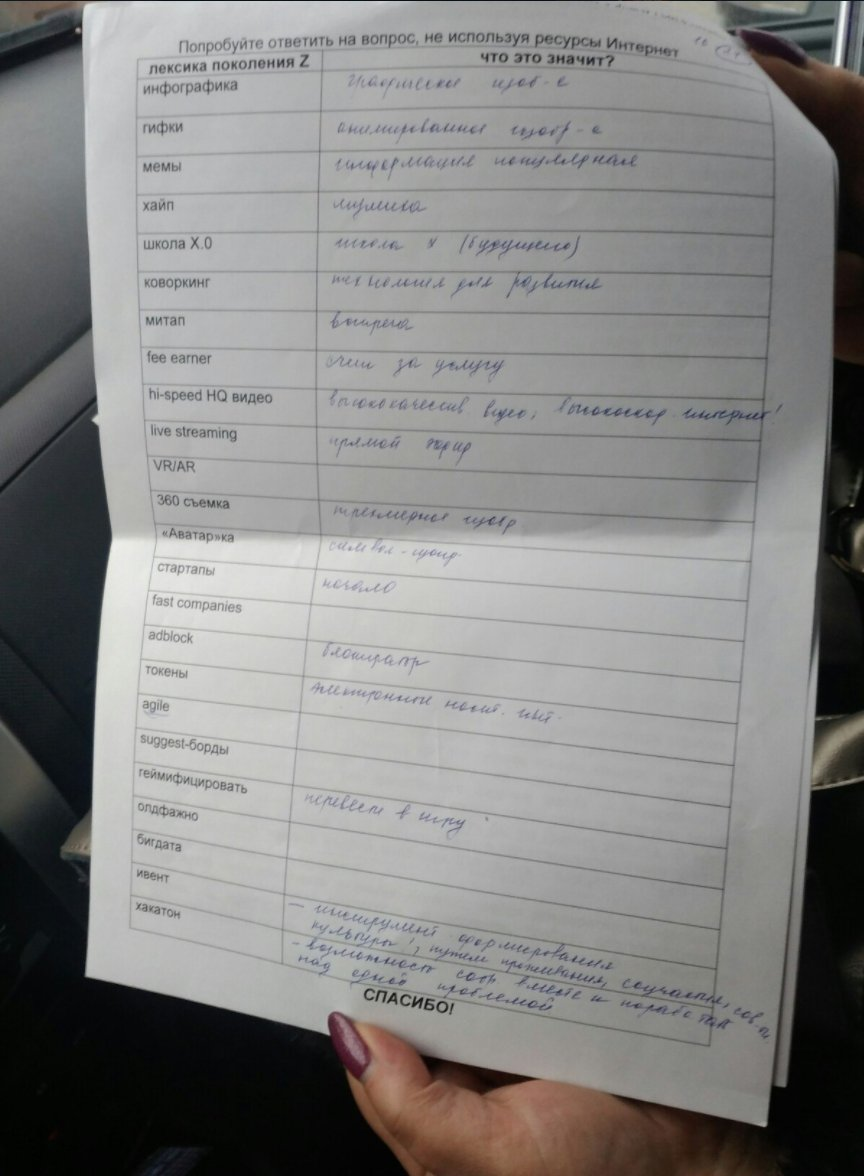 Попробуйте ответить на вопрос, не используя ресурсы Интернет
16
лексика поколения Z что это значит?
инфографика графическое изоб-е
гифки анимированное изобр-е
мемы информация популярная
хайп
школа Х.0 школа Х (будущего)
коворкинг технология для развития
митап встреча
fee earner счет за услугу
hi-speed HQ видео высококачеств. видео, высокоскор. интернет!
live streaming прямой эфир
VR/AR
360 съемка трехмерное изобр
«Аватар»ка символ-
стартапы начало
fast companies
adblock блокиратор
токены электронные носит.
agile
suggest-борды
геймифицировать перевести в игру
олдфажно
бигдата
ивент – инструмент формирования
культуры!, путем проживания, соучастия,
хакатон – возможность собр вместе и поработать
над одной проблемой
СПАСИБО!